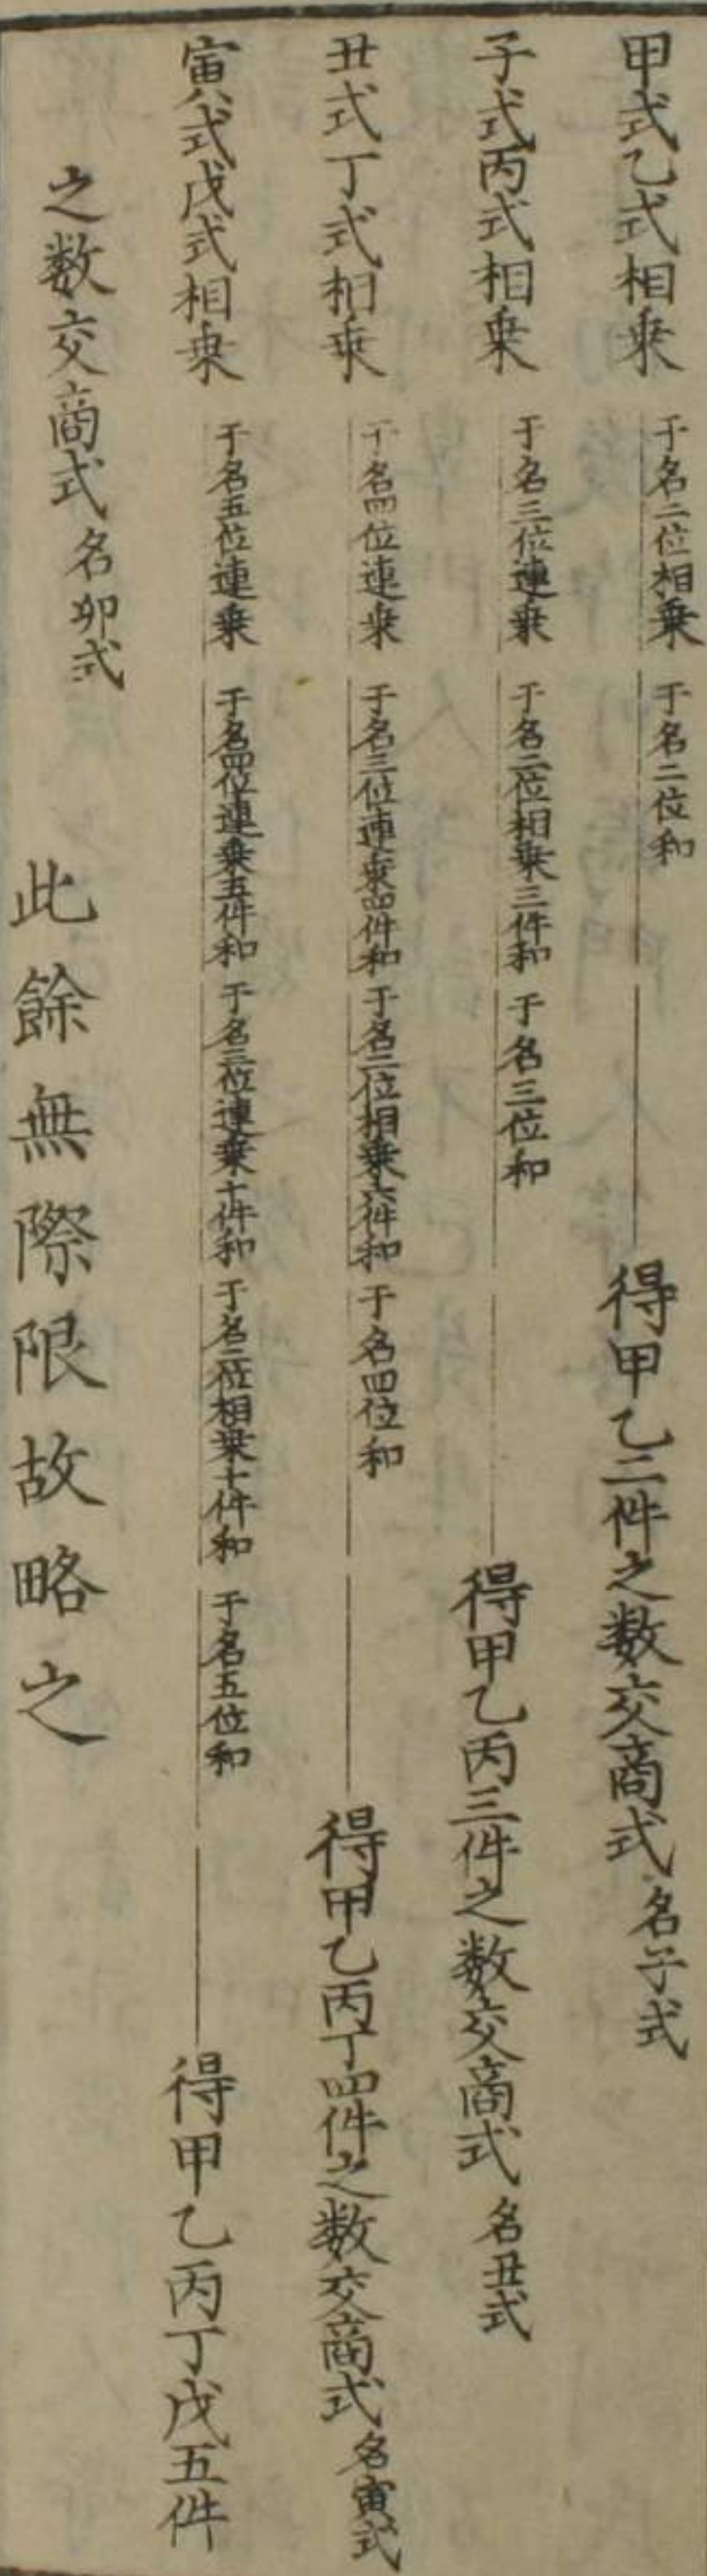 甲式乙式相乗 于名二位相乗 于名二位和 得甲乙二件之数交商式 名子式
子式丙式相乗 于名三位連乗 于名二位相乗三件和 于名三位和 得甲乙丙三件之数交商式 名丑式
丑式丁式相乗 于名四位連乗 于名三位連乗四件和 于名二位相乗六件和 于名四位和 得甲乙丙丁四件之数交商式 名寅式
寅式戊式相乗 于名五位連乗 于名四位連乗五件和 于名三位連乗十件和 于名二位相乗十件和 于名五位和 得甲乙丙丁戊五件
之数交商式 名卯式 此餘無際限故略之